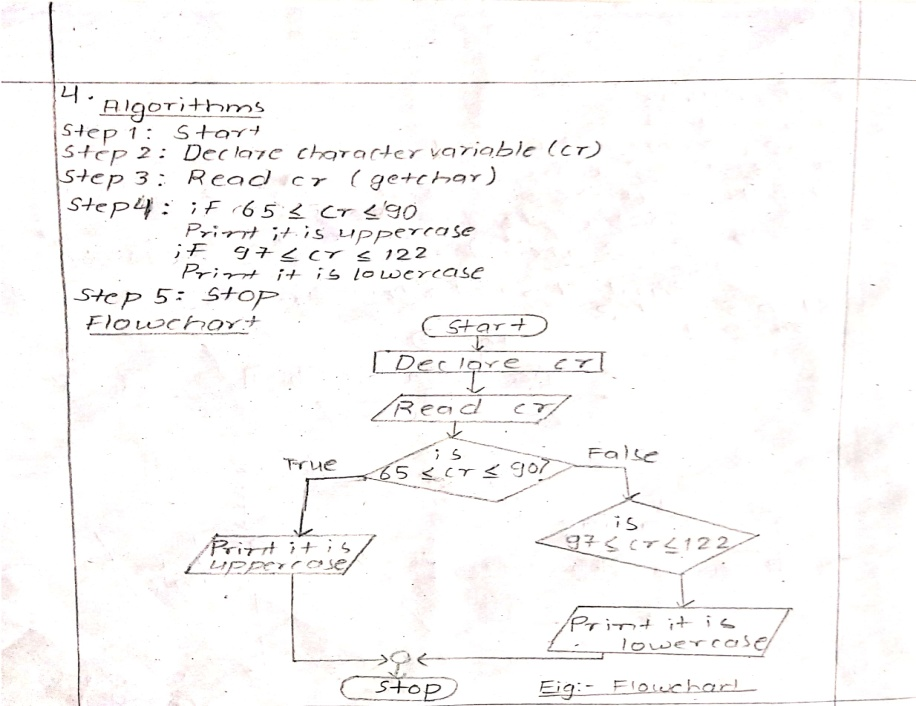 4.
Algorithms
Step 1: Start
Step 2: Declare character variable (cr)
Step 3: Read cr (getchar)
Step 4: if 65 ≤ cr ≤ 90
Print it is uppercase
if 97 ≤ cr ≤ 122
Print it is lowercase
Step 5: Stop
Flowchart
Start
Declare cr
Read cr
is
65 ≤ cr ≤ 90?
True
False
is
97 ≤ cr ≤ 122
Print it is
uppercase
Print it is
lowercase
Stop
Fig:- Flowchart